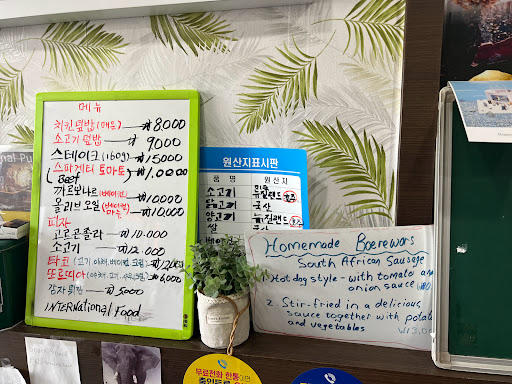 메뉴
치킨덮밥(매운) ₩8000
소고기덮밥 ₩9000
스테이크(160g) ₩15000
스파게티 토마토
(Beef
까르보나라(베이컨) ₩10000
올리브오일 ₩10,000
피자
고르곤졸라 ₩10.000
소고기 ₩12.000
타코
또르띠아 6,000
감자튀김 ₩5000
INTERNational Food
원산지표시판
품 명 원산지
소고기
닭고기 국산
양고기
쌀 국산
Homemade Boerewors
South African Sausage
1. Hot dog style - with tomato and
onion sauce
2. Stir-fried in a delicious
sauce together with potato
and vegetables
무료전화 한통이면